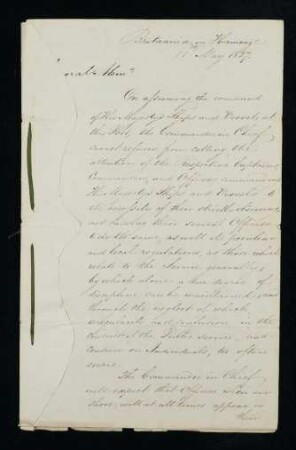 Britannia, in Hamoaze
1st May 1837.
On assuming the command
of His Majesty's Ships and Vessels at
this Port, the Commander in Chief
cannot refrain from calling the
attention of the respective Captains,
Commanders, and Officers commanding
His Majesty's Ships and Vessels to
the necessity of their strictly observing
and making their several Officers
to do the same, as well the peculiar
and local regulations, as those which
relate to the Service generally,
by which alone a true degree of
discipline can be maintained, and
through the neglect of which,
and confusion in the
of the Public Service, and
censure on Individuals, too often
The Commander in Chief
will expect that Officers when on
shore, will at all times appear in
their